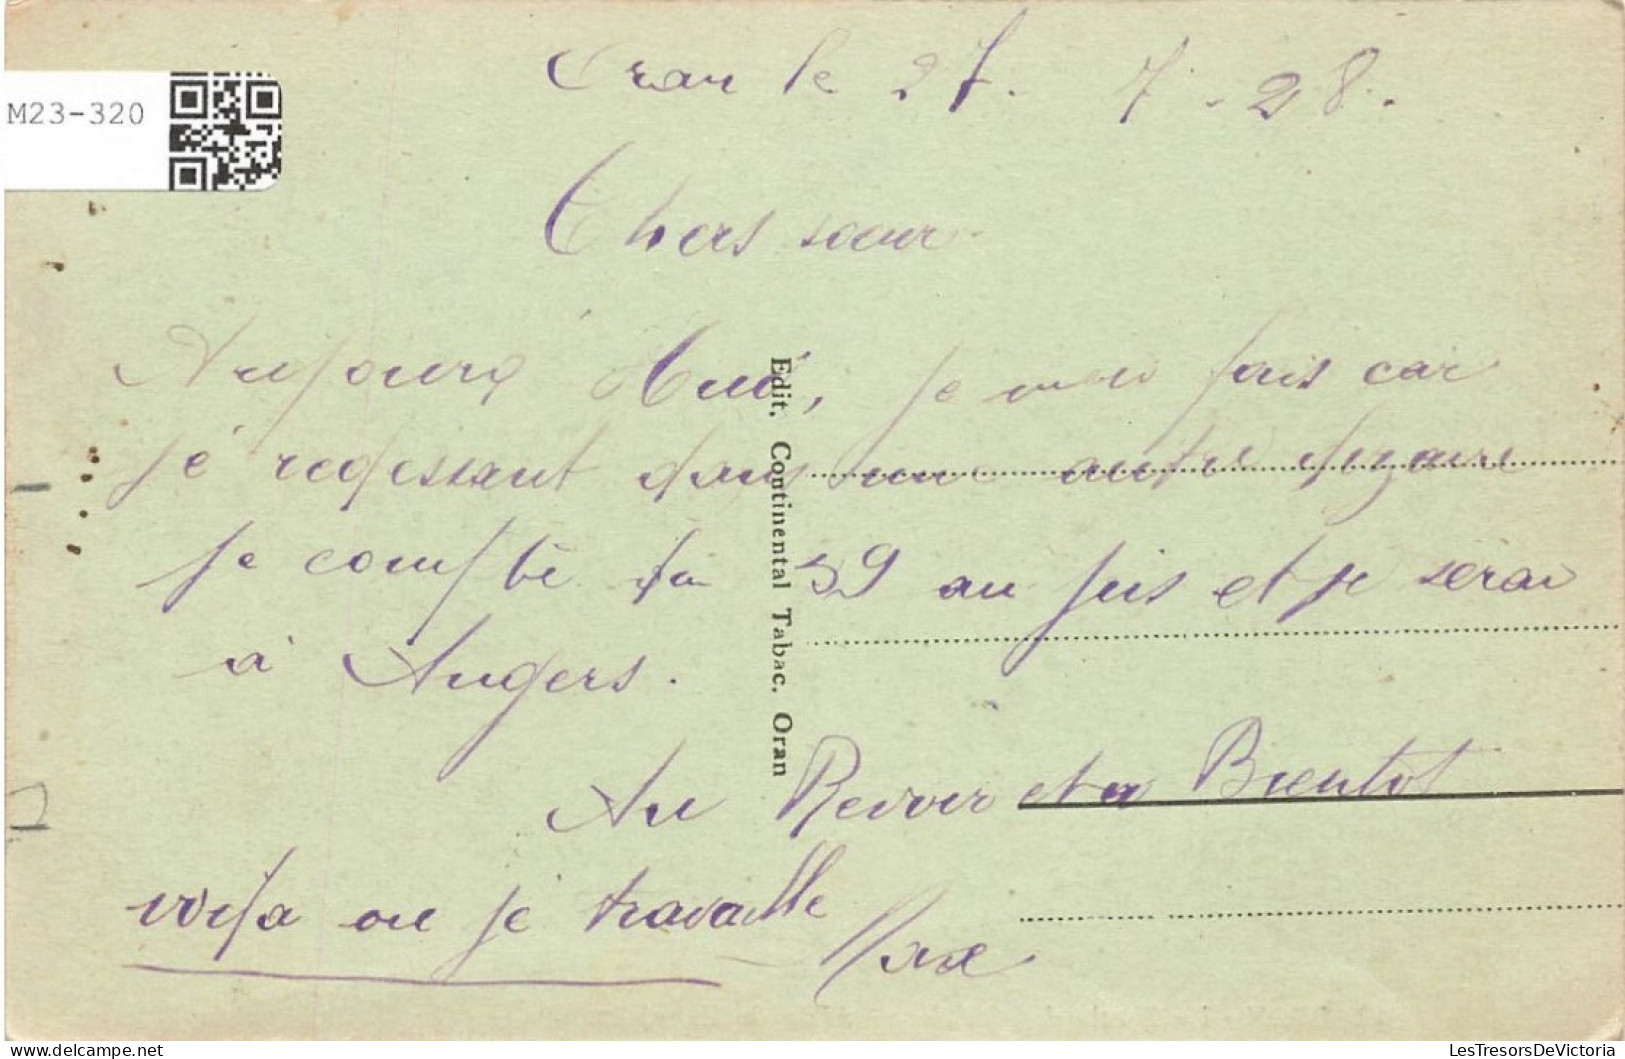 M23-320
Oran le 27. 7. 28.
Chers sœur
Aujourd Hui, je fais car
je dans une autre
je compte 59 au jus et je serai
à Angers.
Au Revoir et a Bientot
voisa ou je travaille
Max
Édit. Continental Tabac. Oran
delcampe.net
LesTresorsDeVictoria